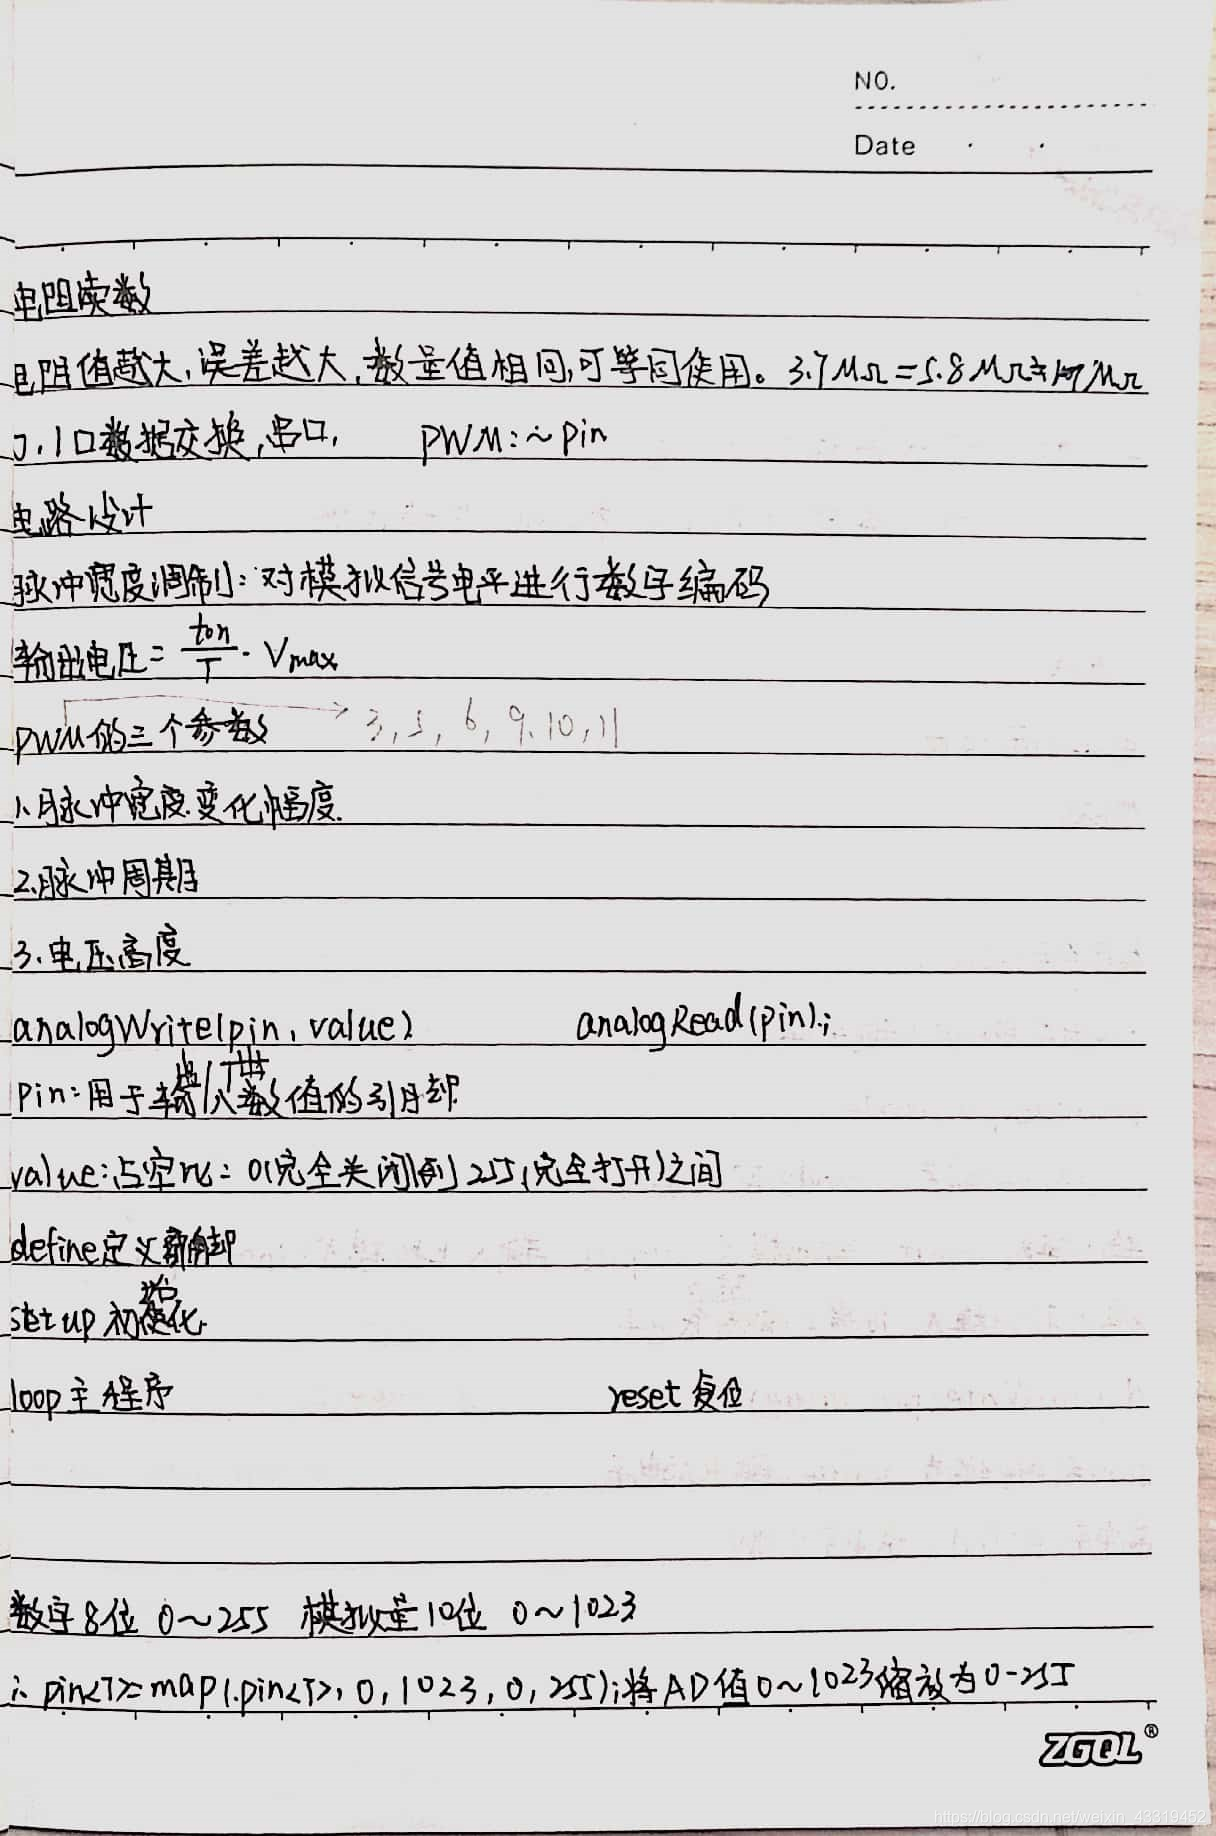 NO.
Date
电阻读数
电阻值越大,误差越大,数量值相同,可等同使用。3.7MΩ=5.8MΩ MΩ
0.1口数据交换,串口, PWM:~pin
电路设计
脉冲宽度调制:对模拟信号电平进行数字编码
输出电压= ton/T · Vmax
PWM的三个参数 3,5,6,9,10,11
1.脉冲宽度变化幅度.
2.脉冲周期
3.电压高度
analogWrite(pin,value) analogRead(pin);
出
pin:用于输/入数值的引脚
value:占空比:0(完全关闭)到255(完全打开)之间
define定义 脚
始
setup初 化
loop主程序 reset复位
数字8位 0~255 模拟量10位 0~1023
∴ pin<T>=map(pin<T>,0,1023,0,255);将AD值0~1023缩放为0-255
ZGQL®
https://blog.csdn.net/weixin_43319452